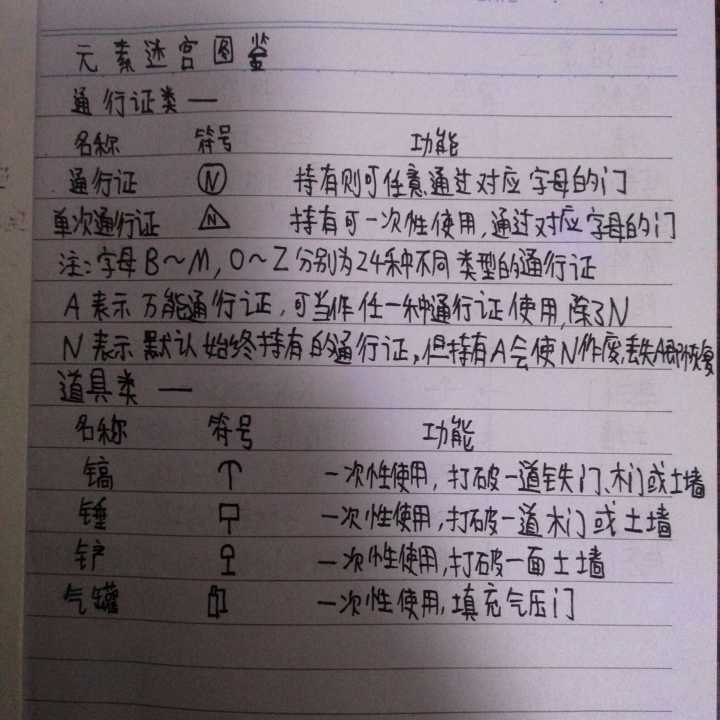 元素迷宫图鉴
通行证类 —
名称 符号 功能
通行证 Ⓝ 持有则可任意通过对应字母的门
单次通行证 N 持有可一次性使用,通过对应字母的门
注:字母B~M,O~Z分别为24种不同类型的通行证
A表示万能通行证,可当作任一种通行证使用,除了N
N表示默认始终持有的通行证,但持有A会使N作废,丢失A即恢复
道具类 —
名称 符号 功能
镐 一次性使用,打破一道铁门、木门或土墙
锤 一次性使用,打破一道木门或土墙
铲 一次性使用,打破一面土墙
气罐 一次性使用,填充气压门